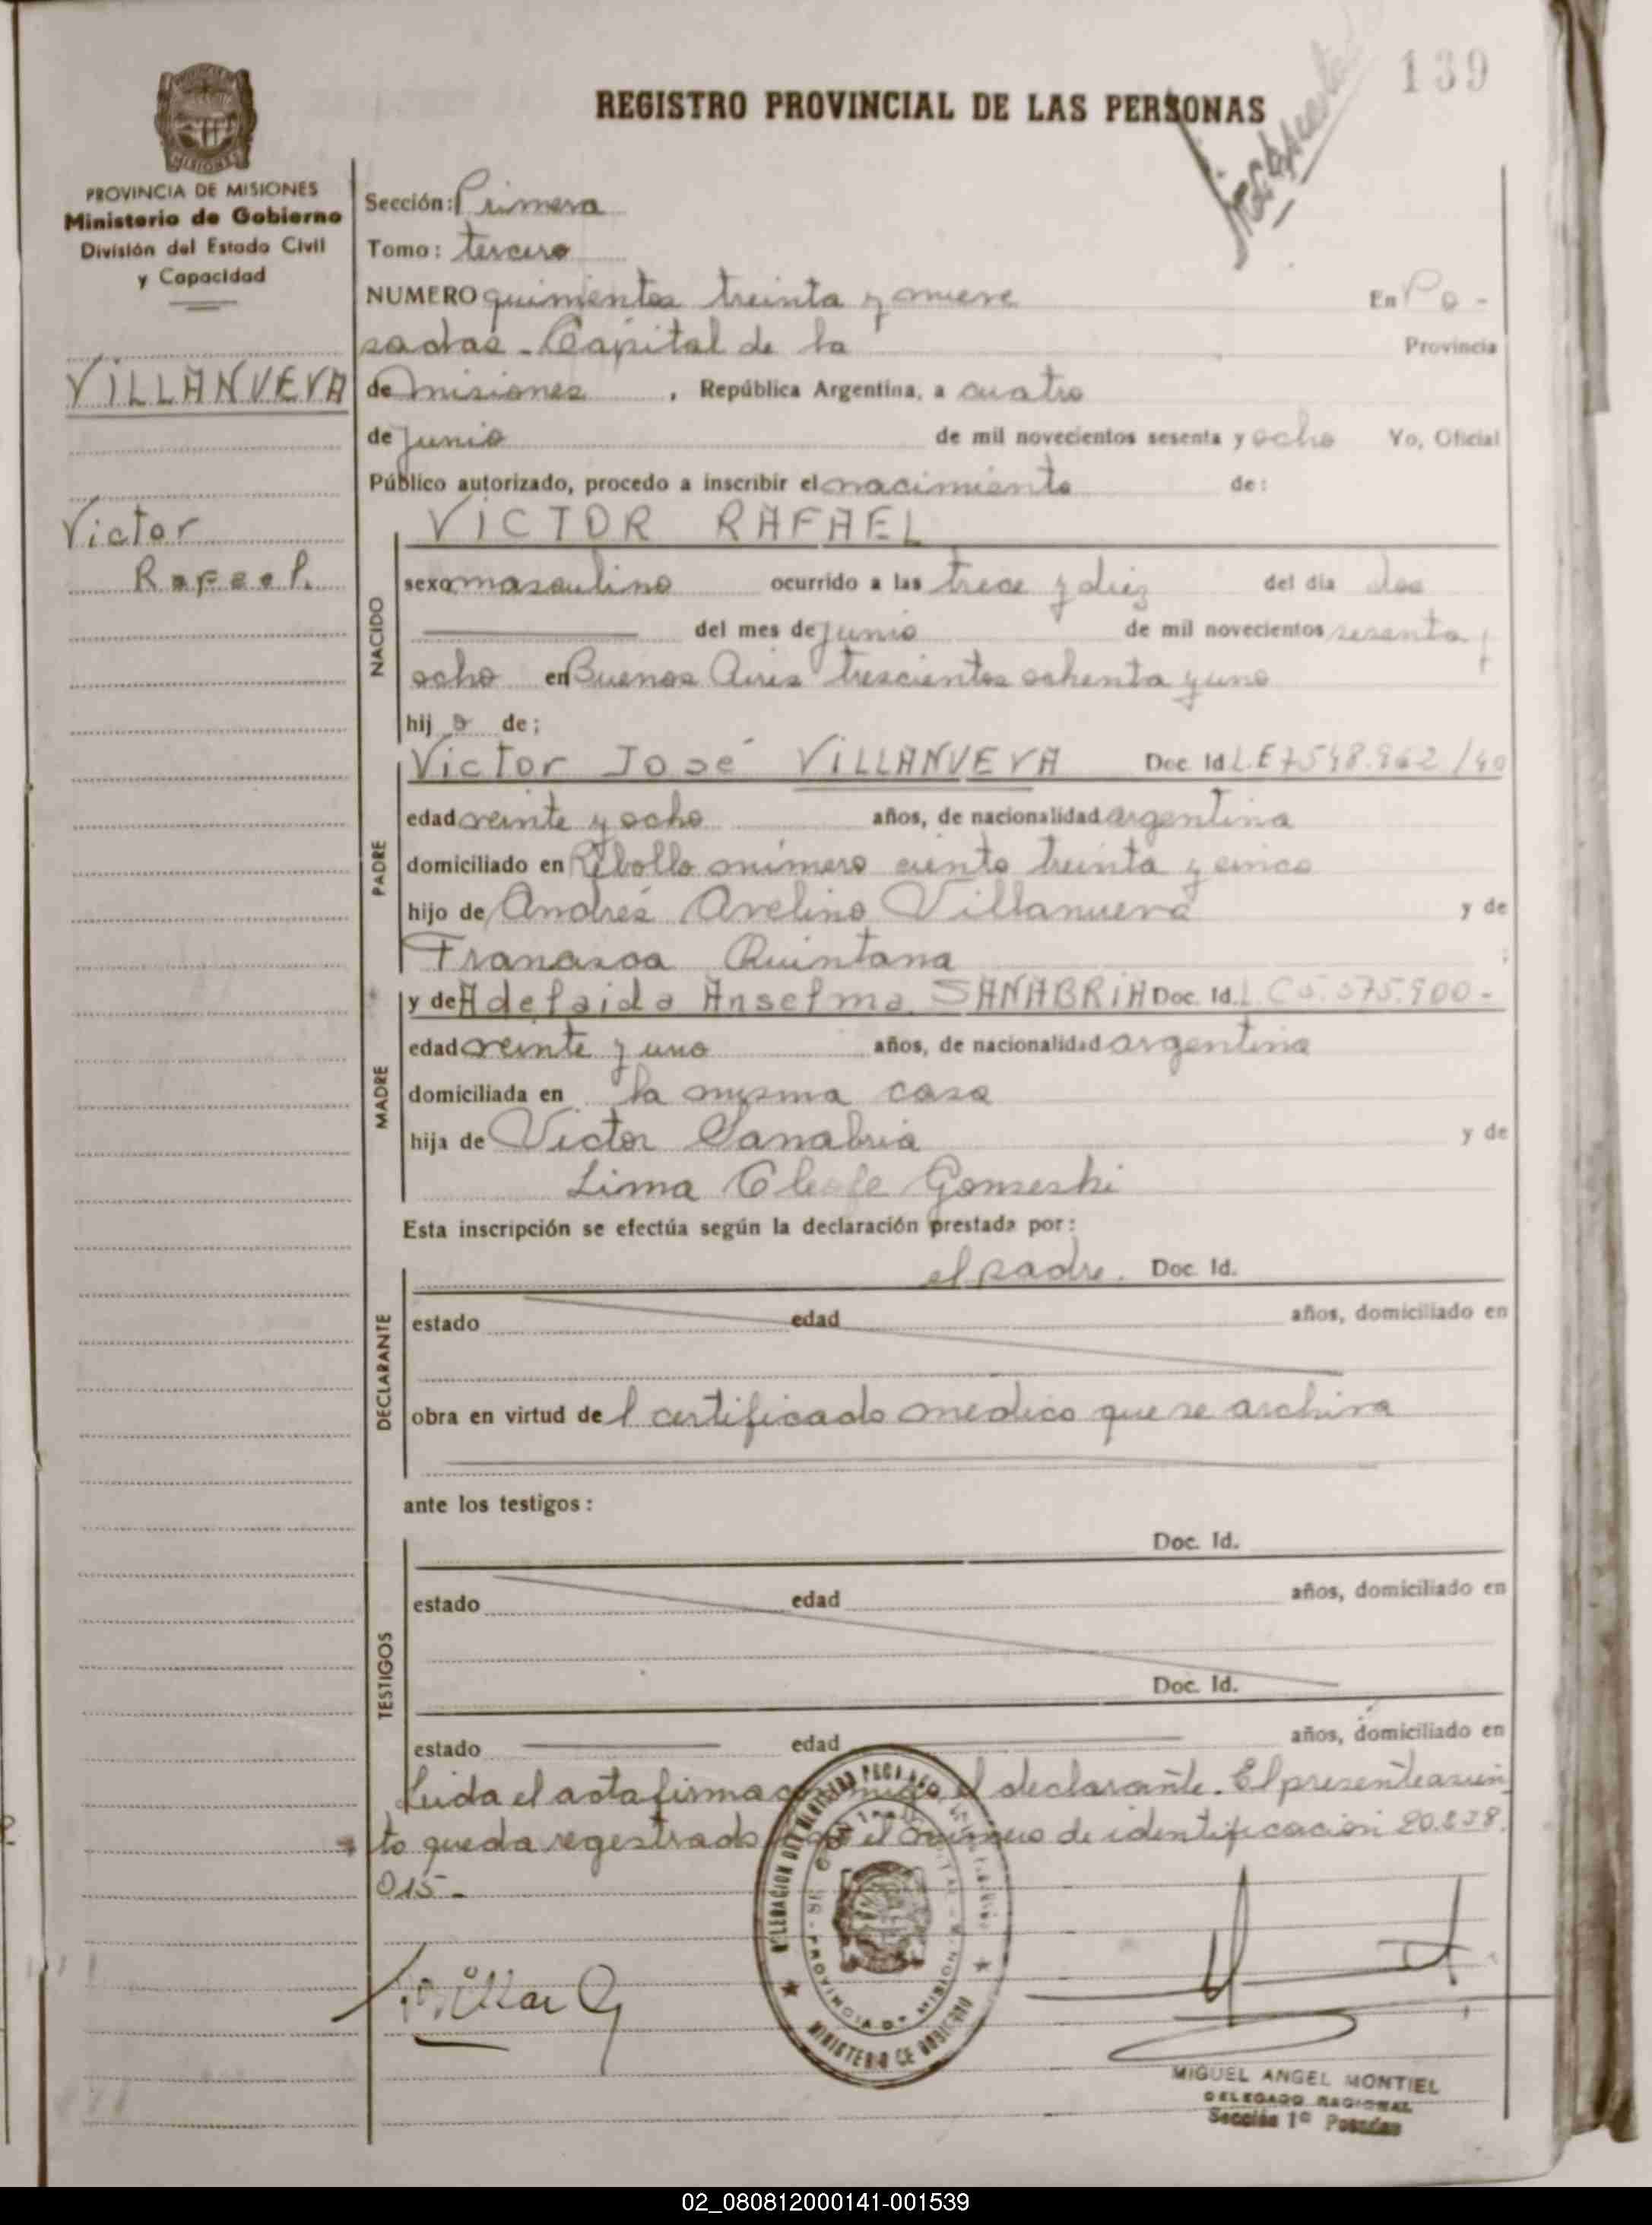 139
REGISTRO PROVINCIAL DE LAS PERSONAS
MISIONES
PROVINCIA DE MISIONES
Ministerio de Gobierno
División del Estado Civil
y Capacidad
VILLANUEVA
Victor
Rafael.
Sección: Primera
Tomo: tercero
NUMERO quinientos treinta y nueve En Po-
sadas - Capital de la Provincia
de Misiones, República Argentina, a cuatro
de Junio de mil novecientos sesenta y ocho Yo, Oficial
Público autorizado, procedo a inscribir el nacimiento de:
NACIDO
VICTOR RAFAEL
sexo masculino ocurrido a las trece y diez del dia dos
del mes de Junio de mil novecientos sesenta y
ocho en Buenos Aires trescientos ochenta y uno
hijo de;
PADRE
Victor José VILLANUEVA Doc. Id. L.E 7548.962/40
edad veinte y ocho años, de nacionalidad argentina
domiciliado en número ciento treinta y cinco
hijo de Andrés Avelino Villanueva y de
Francisca Quintana
MADRE
y de Adelaida Anselma SANABRIA Doc. Id. L.C 5.075.900-
edad veinte y uno años, de nacionalidad argentina
domiciliada en la misma casa
hija de Victor Sanabria y de
Lima Cleofe
Esta inscripción se efectúa según la declaración prestada por:
DECLARANTE
el padre. Doc. Id.
estado edad años, domiciliado en
obra en virtud del certificado medico que se archiva
ante los testigos:
TESTIGOS
Doc. Id.
estado edad años, domiciliado en
Doc. Id.
estado edad años, domiciliado en
Leida el acta firma conmigo el declarante. El presente asien
to queda registrado bajo el número de identificación 20.838.
015-
PROVINCIA DE MISIONES
MINISTERIO DE GOBIERNO
MIGUEL ANGEL MONTIEL
DELEGADO REGIONAL
Sección 1ª Posadas
02_080812000141-001539